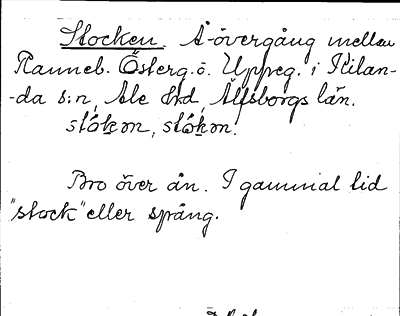 Stocken. Å-övergång mellan
Ranneb. Österg. ö. Uppeg. i Kilan-
-da s:n, Ale hd, Älfsborgs län.
stókən, stókən.
Bro över ån. I gammal tid
"stock" eller spång.